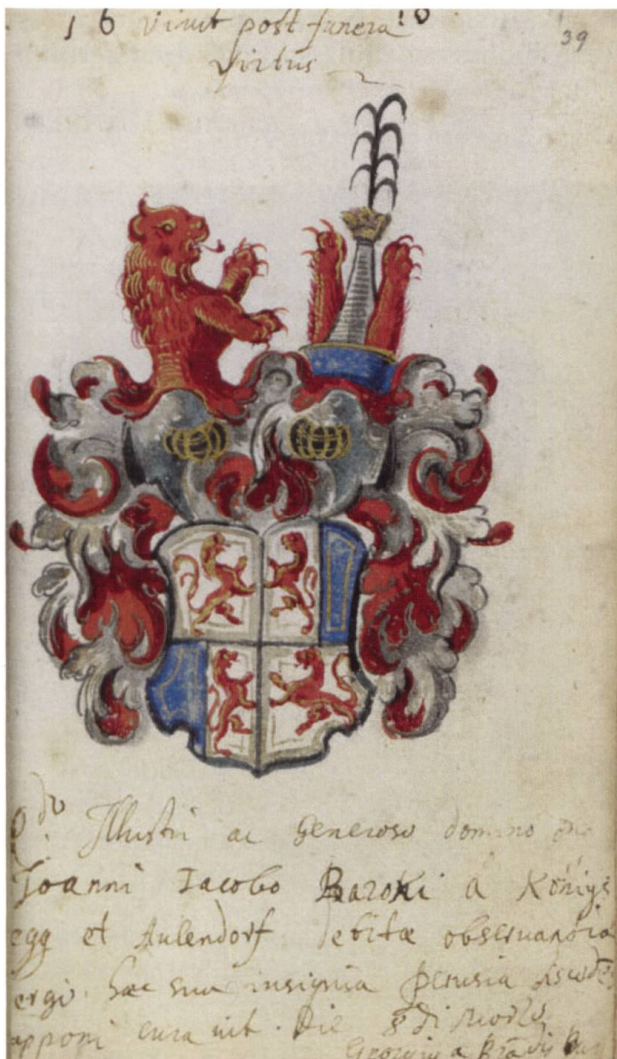 16 Viuit post funera 10
Virtus
39
Illustri ac Generoso domino
Joanni Iacobo Baroni à Königs
egg et Aulendorf debitæ obseruantia
ergò hæc sua insignia Perusia
apponi curauit. Die 8 di
Georgius à